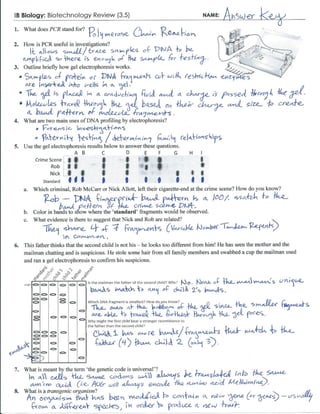 IB Biology: Biotechnology Review (3.5)
NAME: Answer Key
1. What does PCR stand for? Polymerase Chain Reaction
2. How is PCR useful in investigations?
It allows small/trace samples of DNA to be
amplified so there is enough of the sample for testing.
3. Outline briefly how gel electrophoresis works.
• Samples of protein or DNA fragments cut with restriction enzymes
are inserted into wells in a gel.
• The gel is placed in a conducting fluid and a charge is passed through the gel.
• Molecules travel through the gel based on their charge and size to create
a band pattern of molecular fragments.
4. What are two main uses of DNA profiling by electrophoresis?
• Forensic investigations
• Paternity testing / determining family relationships
5. Use the gel electrophoresis results below to answer these questions.
A B C D E F G H I
Crime Scene
Rob
Nick
Standard
a. Which criminal, Rob McCarr or Nick Allott, left their cigarette-end at the crime scene? How do you know?
Rob - DNA fingerprint band pattern is a 100% match to the
band pattern of the crime scene DNA.
b. Color in bands to show where the 'standard' fragments would be observed.
c. What evidence is there to suggest that Nick and Rob are related?
They share 4 of 7 fragments (Variable Number Tandem Repeats)
in common.
6. This father thinks that the second child is not his – he looks too different from him! He has seen the mother and the
mailman chatting and is suspicious. He stole some hair from all family members and swabbed a cup the mailman used
and ran a gel electrophoresis to confirm his suspicions.
mother
child 1
child 2
father
mailman
Is the mailman the father of the second child? Why? No. None of the mailman's unique
bands match to any of child 2's bands.
Which DNA fragment is smallest? How do you know?
The ones at the bottom of the gel since the smaller fragments
are able to travel the farthest through the gel pores.
Why might the first child bear a stronger resemblance to
the father than the second child?
Child 1 has more bands/fragments that match to the
father (4) than child 2 (only 3).
7. What is meant by the term 'the genetic code is universal'?
In all cells the same codons will always be translated into the same
amino acid (i.e. AUG will always encode the amino acid Methionine).
8. What is a transgenic organism?
An organism that has been modified to contain a new gene (or genes) – usually
from a different species, in order to produce a new trait.